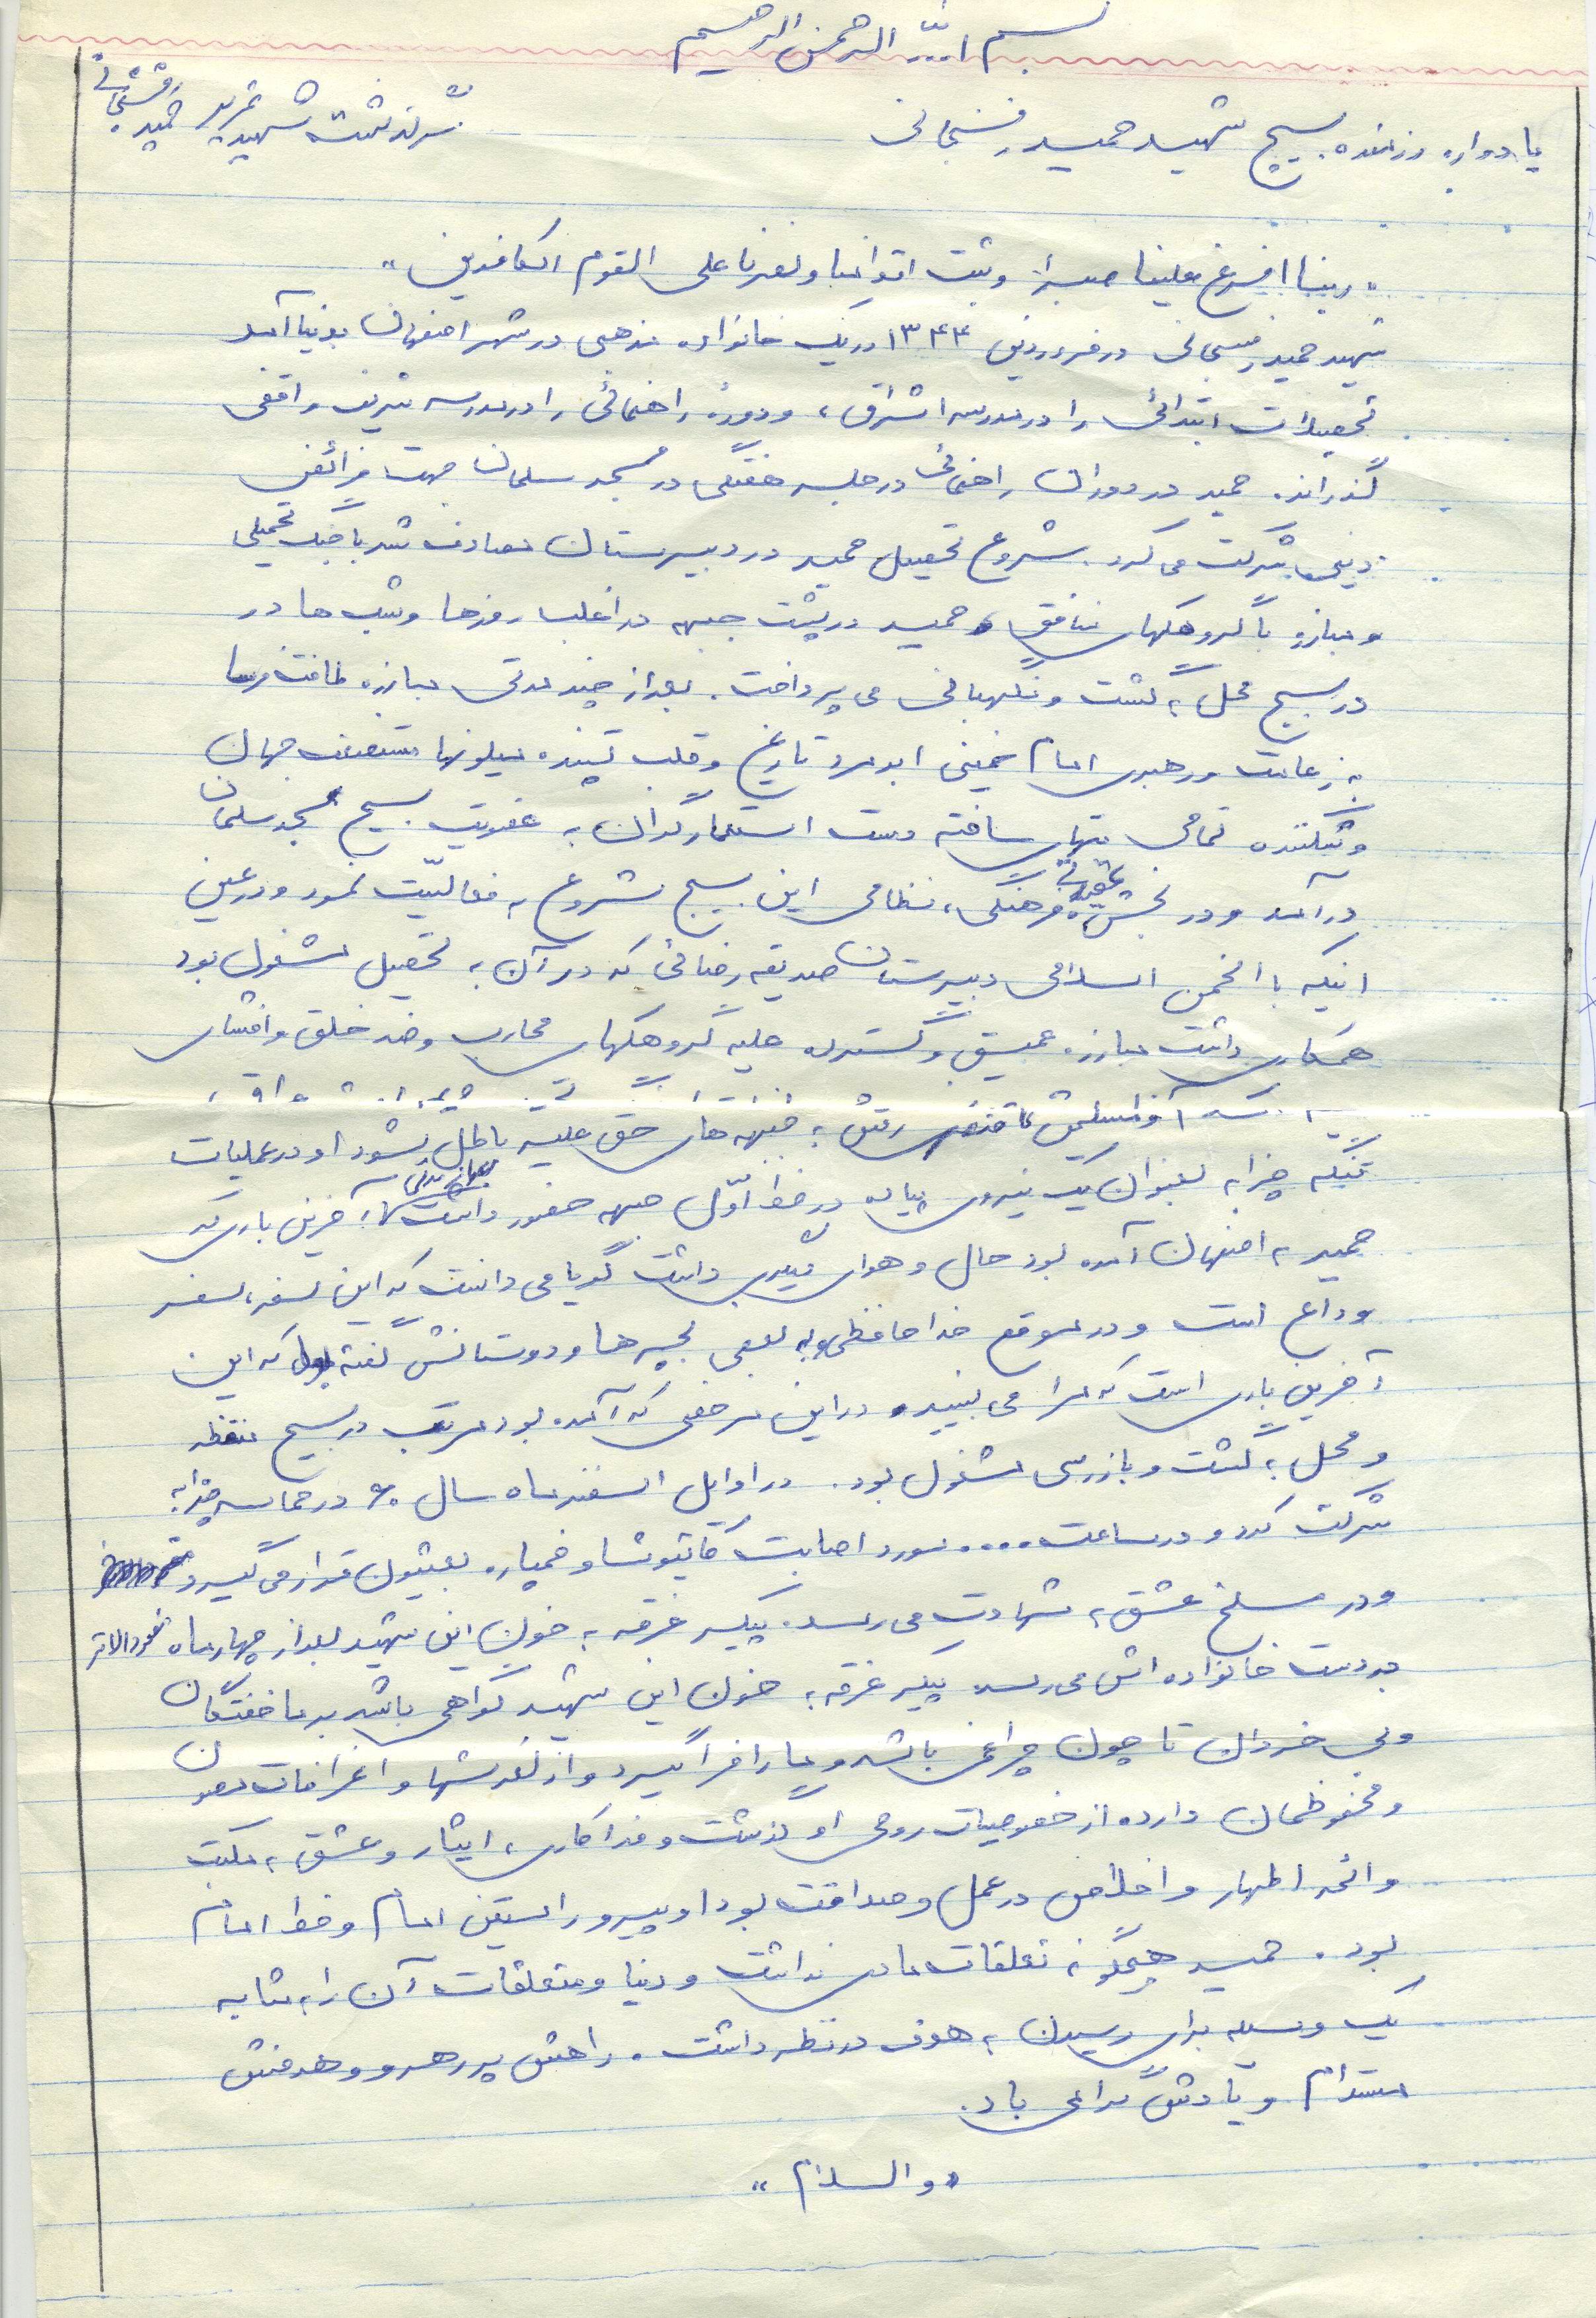 بسم الله الرحمن الرحیم
سرگذشت شهید حمید رفسنجانی
یادواره رزمنده بسیج شهید حمید رفسنجانی
«ربنا افرغ علینا صبرا و ثبت اقدامنا ونصرنا علی القوم الکافرین»
شهید حمید رفسنجانی در فروردین ۱۳۴۴ در یک خانواده مذهبی در شهر اصفهان بدنیا آمد
تحصیلات ابتدائی را در مدرسه اشراق، و دورهٔ راهنمائی را در مدرسه شریف واقفی
گذراند. حمید در دوران راهنمائی در جلسه هفتگی در مسجد سلمان جهت فرائض
دینی شرکت می کرد. شروع تحصیل حمید در دبیرستان مصادف شد با جنگ تحمیلی
و مبارزه با گروهکهای منافق، حمید در پشت جبهه در اغلب روزها و شب ها در
در بسیج محل به گشت و نگهبانی می پرداخت. بعد از چند مدتی مبارزه طاقت فرسا
به زعامت و رهبری امام خمینی ابرمرد تاریخ و قلب تپنده میلونها مستضعف جهان
و شکننده تمامی بتهای ساخته دست استعمارگران به عضویت بسیج مسجد سلمان
درآمد و در بخش تحقیقاتی، فرهنگی، نظامی این بسیج شروع به فعالیّت نمود و در عین
اینکه با انجمن اسلامی دبیرستان صدیقه رضائی که در آن به تحصیل مشغول بود
همکاری داشت مبارزه عمیق و گسترده علیه گروهکهای محارب و ضد خلق و افشای
رفتن به جبهه های حق علیه باطل بشود او در عملیات
تنگه چزابه بعنوان یک نیروی پیاده در خط اوّل جبهه حضور داشت آخرین باری که
حمید به اصفهان آمده بود حال و هوای دیگری داشت گویا می دانست که این سفر، سفر
وداع است و در موقع خداحافظی به بعضی بچه ها و دوستانش گفته بود که این
آخرین باری است که مرا می بینید. در این مرخصی که آمده بود مرتب در بسیج منطقه
و محل به گشت و بازرسی مشغول بود. در اوایل اسفند ماه سال ۶۰ در حماسه چزابه
شرکت کرد و در ساعت .... مورد اصابت کاتیوشا و خمپاره بعثیون قرار می گیرد
و در مسلخ عشق به شهادت می رسد. پیکر غرقه به خون این شهید بعد از چهار ماه
بدست خانواده اش می رسد پیکر غرقه به خون این شهید گواهی باشد بر ما خفتگان
و بی خردان تا چون چراغی باشد و ما را فرا گیرد و از لغزشها و انحرافات مصون
و محفوظمان دارد. از خصوصیات روحی او گذشت و فداکاری، ایثار و عشق به مکتب
و ائمه اطهار و اخلاص در عمل و صداقت بود او پیرو راستین امام و خط امام
بود. حمید هیچگونه تعلقات مادی نداشت و دنیا و متعلقات آن را به مثابه
یک وسیله برای رسیدن به هدف در نظر داشت. راهش پر رهرو و هدفش
مستدام و یادش گرامی باد.
«والسلام»